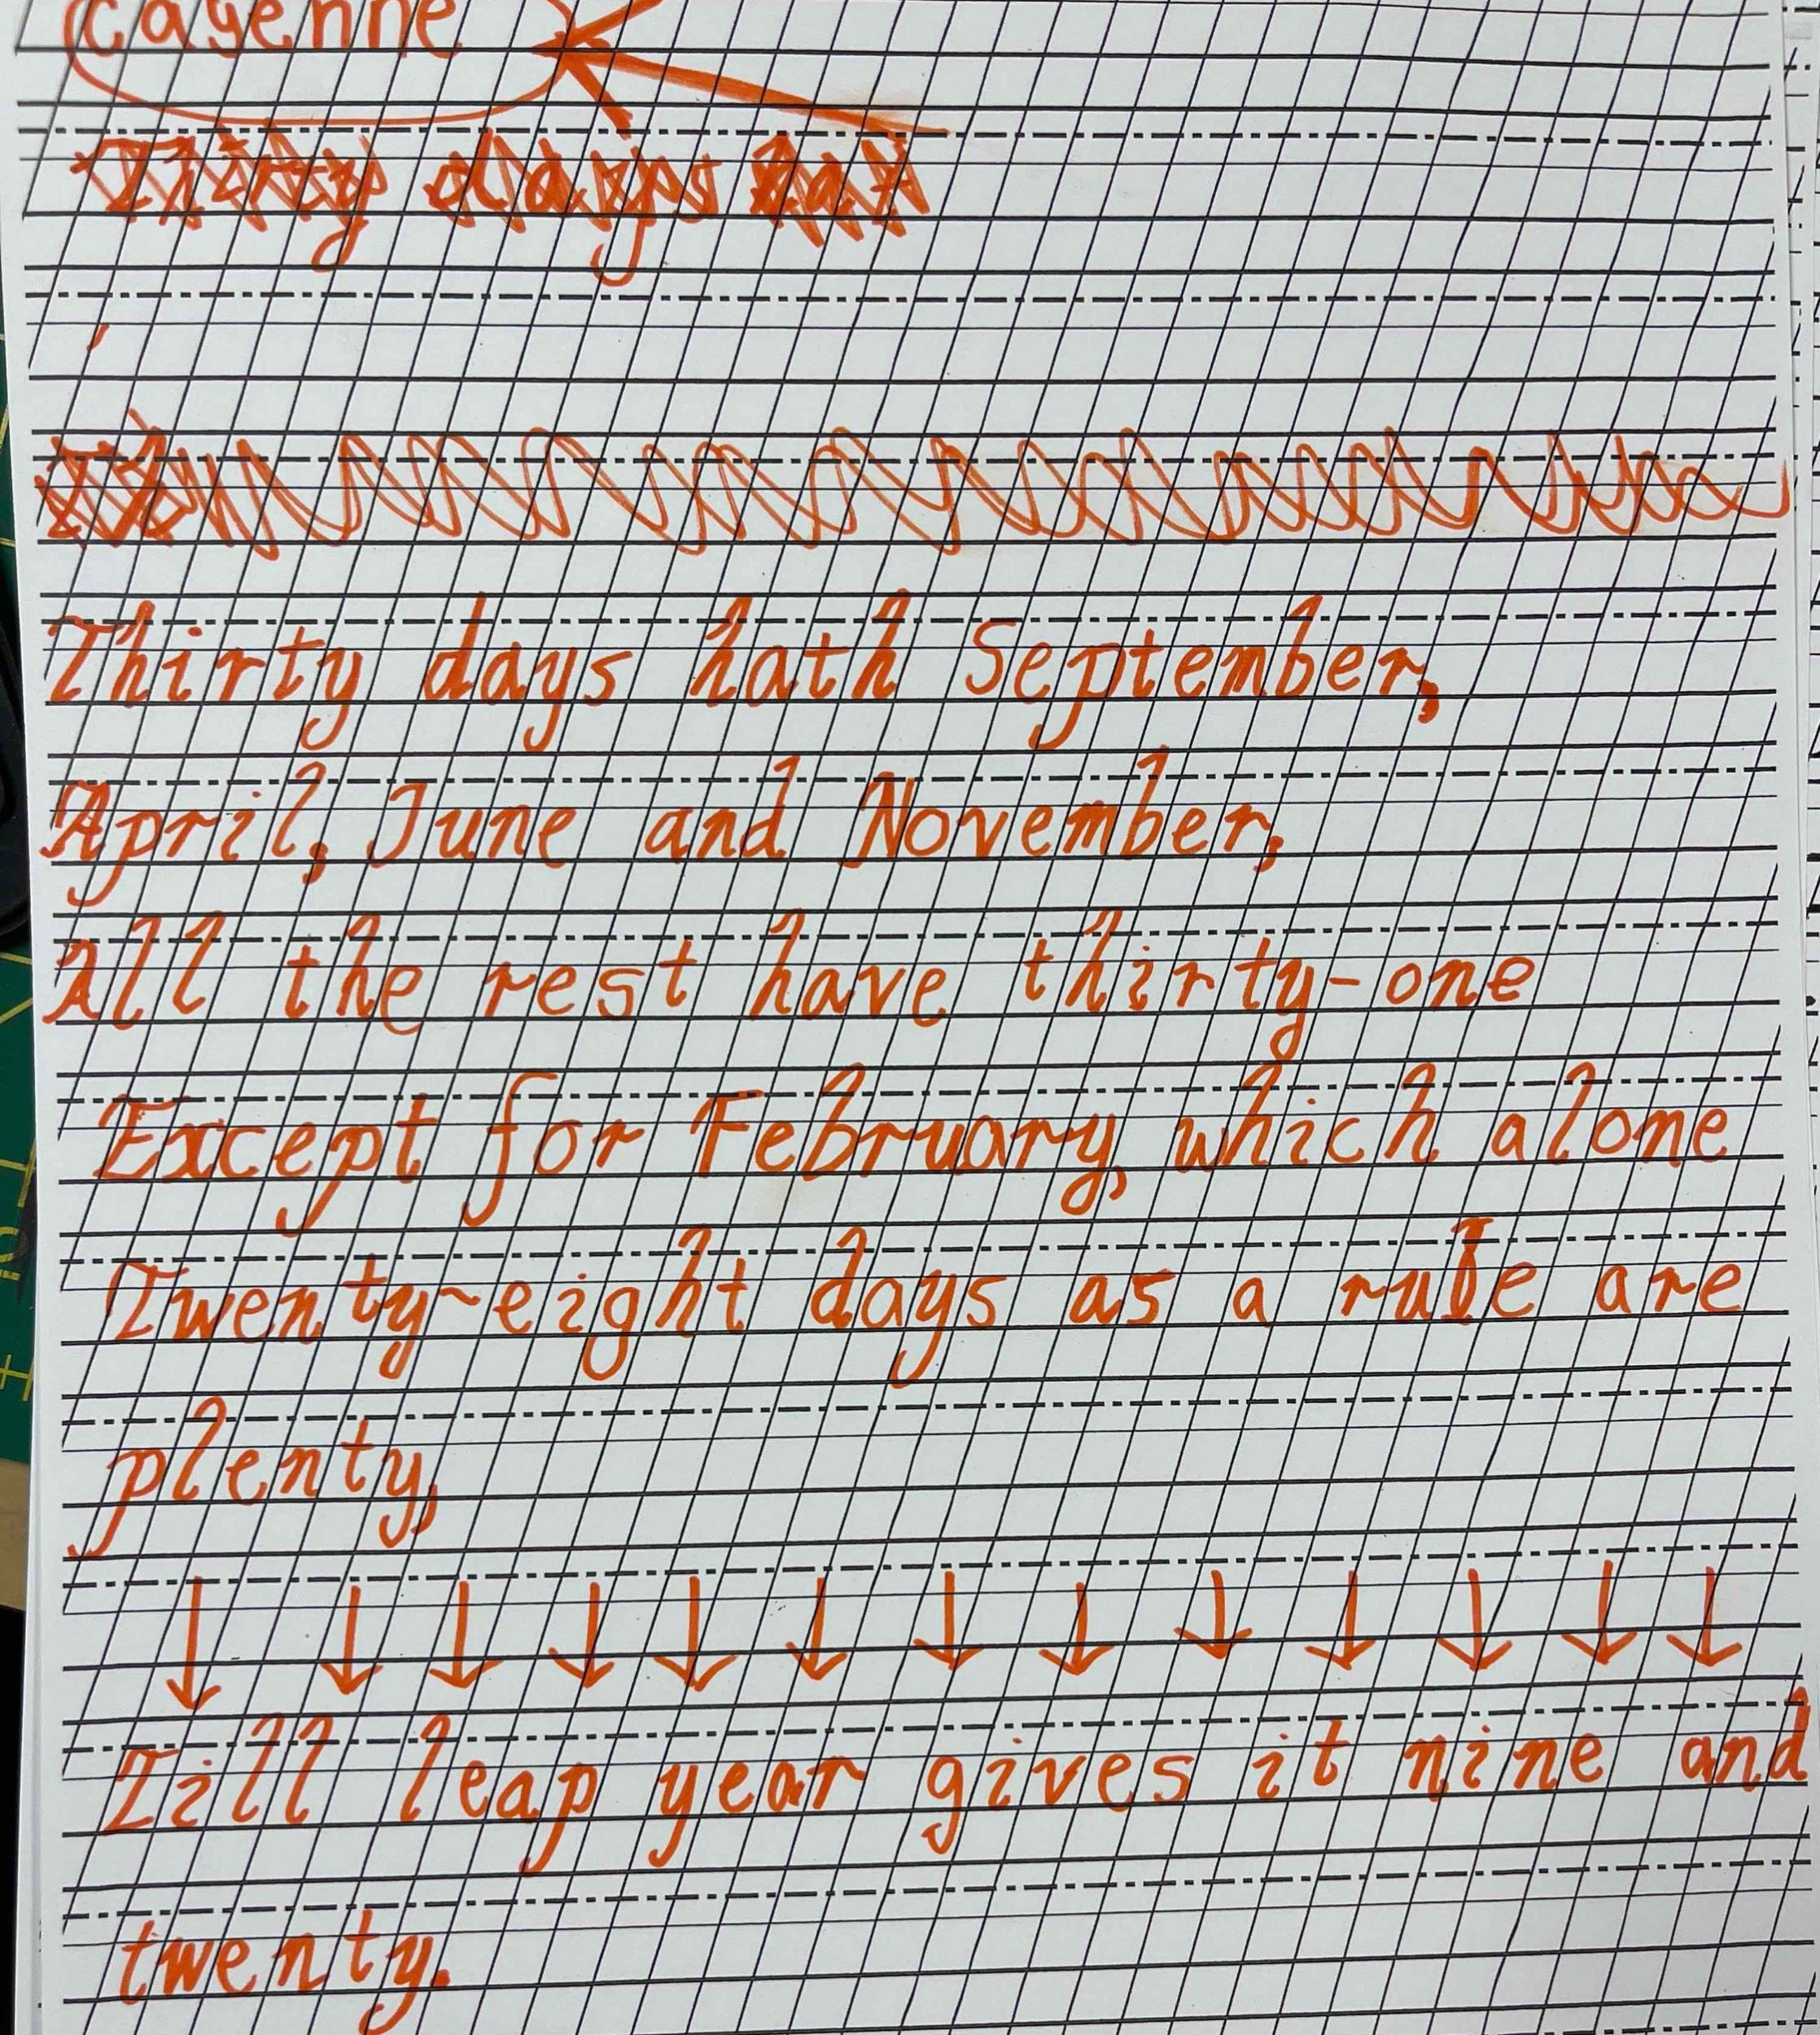 cayenne
Thirty days hat
Thirty days hath September,
April, June and November,
All the rest have thirty-one
Except for February, which alone
Twenty-eight days as a rule are
plenty,
Till leap year gives it nine and
twenty.